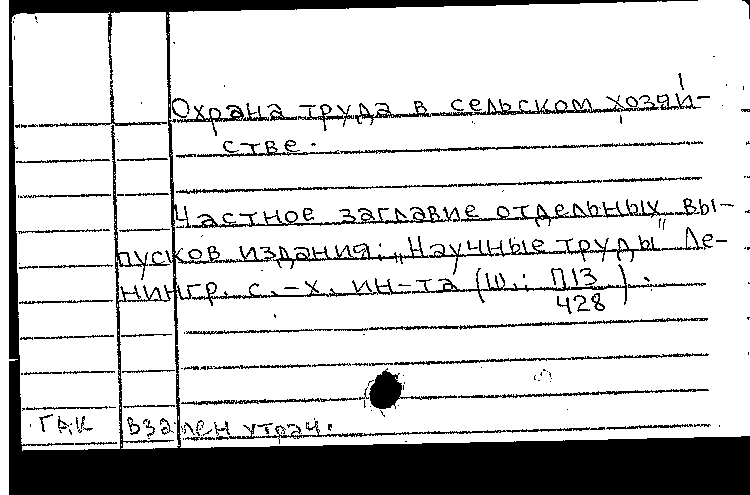 Охрана труда в сельском хозяй-
стве.
Частное заглавие отдельных вы-
пусков издания: „Научные труды" Ле-
нингр. с.-х. ин-та (Ш.: П13/428).
ГАК взамен утрач.